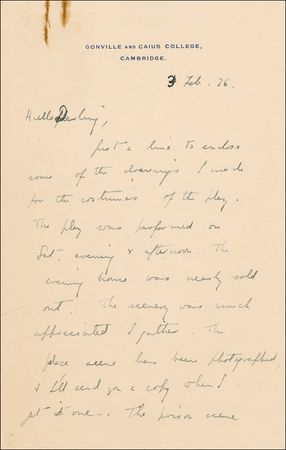 GONVILLE AND CAIUS COLLEGE,
CAMBRIDGE.
3 Feb. 36.
Hullo Darling,
Just a line to enclose
some of the drawings I made
for the costumes of the play.
The play was performed on
Sat. evening & afternoon. The
evening house was nearly sold
out. The scenery was much
appreciated I gather. The
place scene has been photographed,
& I'll send you a copy when I
get one. The prison scene